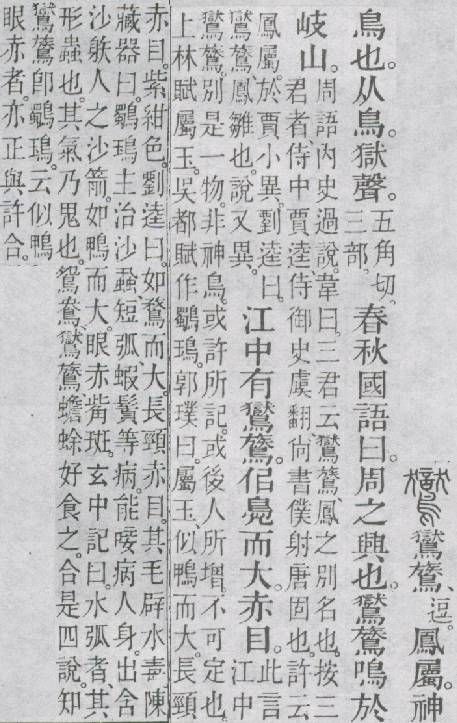 鸑鷟、逗。鳳屬。神
鳥也。从鳥。獄聲。五角切。三部。春秋國語曰。周之興也。鸑鷟鳴於
岐山。周語內史過說。韋曰。三君云。鸑鷟、鳳之別名也。按三君者、侍中賈逵、侍御史虞翻、尙書僕射唐固也。許云
鳳屬。於賈小異。劉逵曰。鸑鷟、鳳雛也。說又異。江中有鸑鷟。佀鳧而大。赤目。此言江中
鸑鷟。別是一物。非神鳥。或許所記。或後人所增。不可定也。上林賦屬玉。吳都賦作鸀瑦。郭璞曰。屬玉、似鴨而大。長頸
赤目。紫紺色。劉逵曰。如鶩而大。長頸赤目。其毛辟水毒。陳藏器曰。鸀瑦主治沙蝨、短弧、蝦鬚等病。能唼病人身。出含
沙躲人之沙箭。如鴨而大。眼赤觜斑。玄中記曰。水弧者、其形蟲也。其氣乃鬼也。鴛鴦、鸑鷟、蟾蜍好食之。合是四說。知
鸑鷟卽鸀瑦。云似鴨眼赤者。亦正與許合。